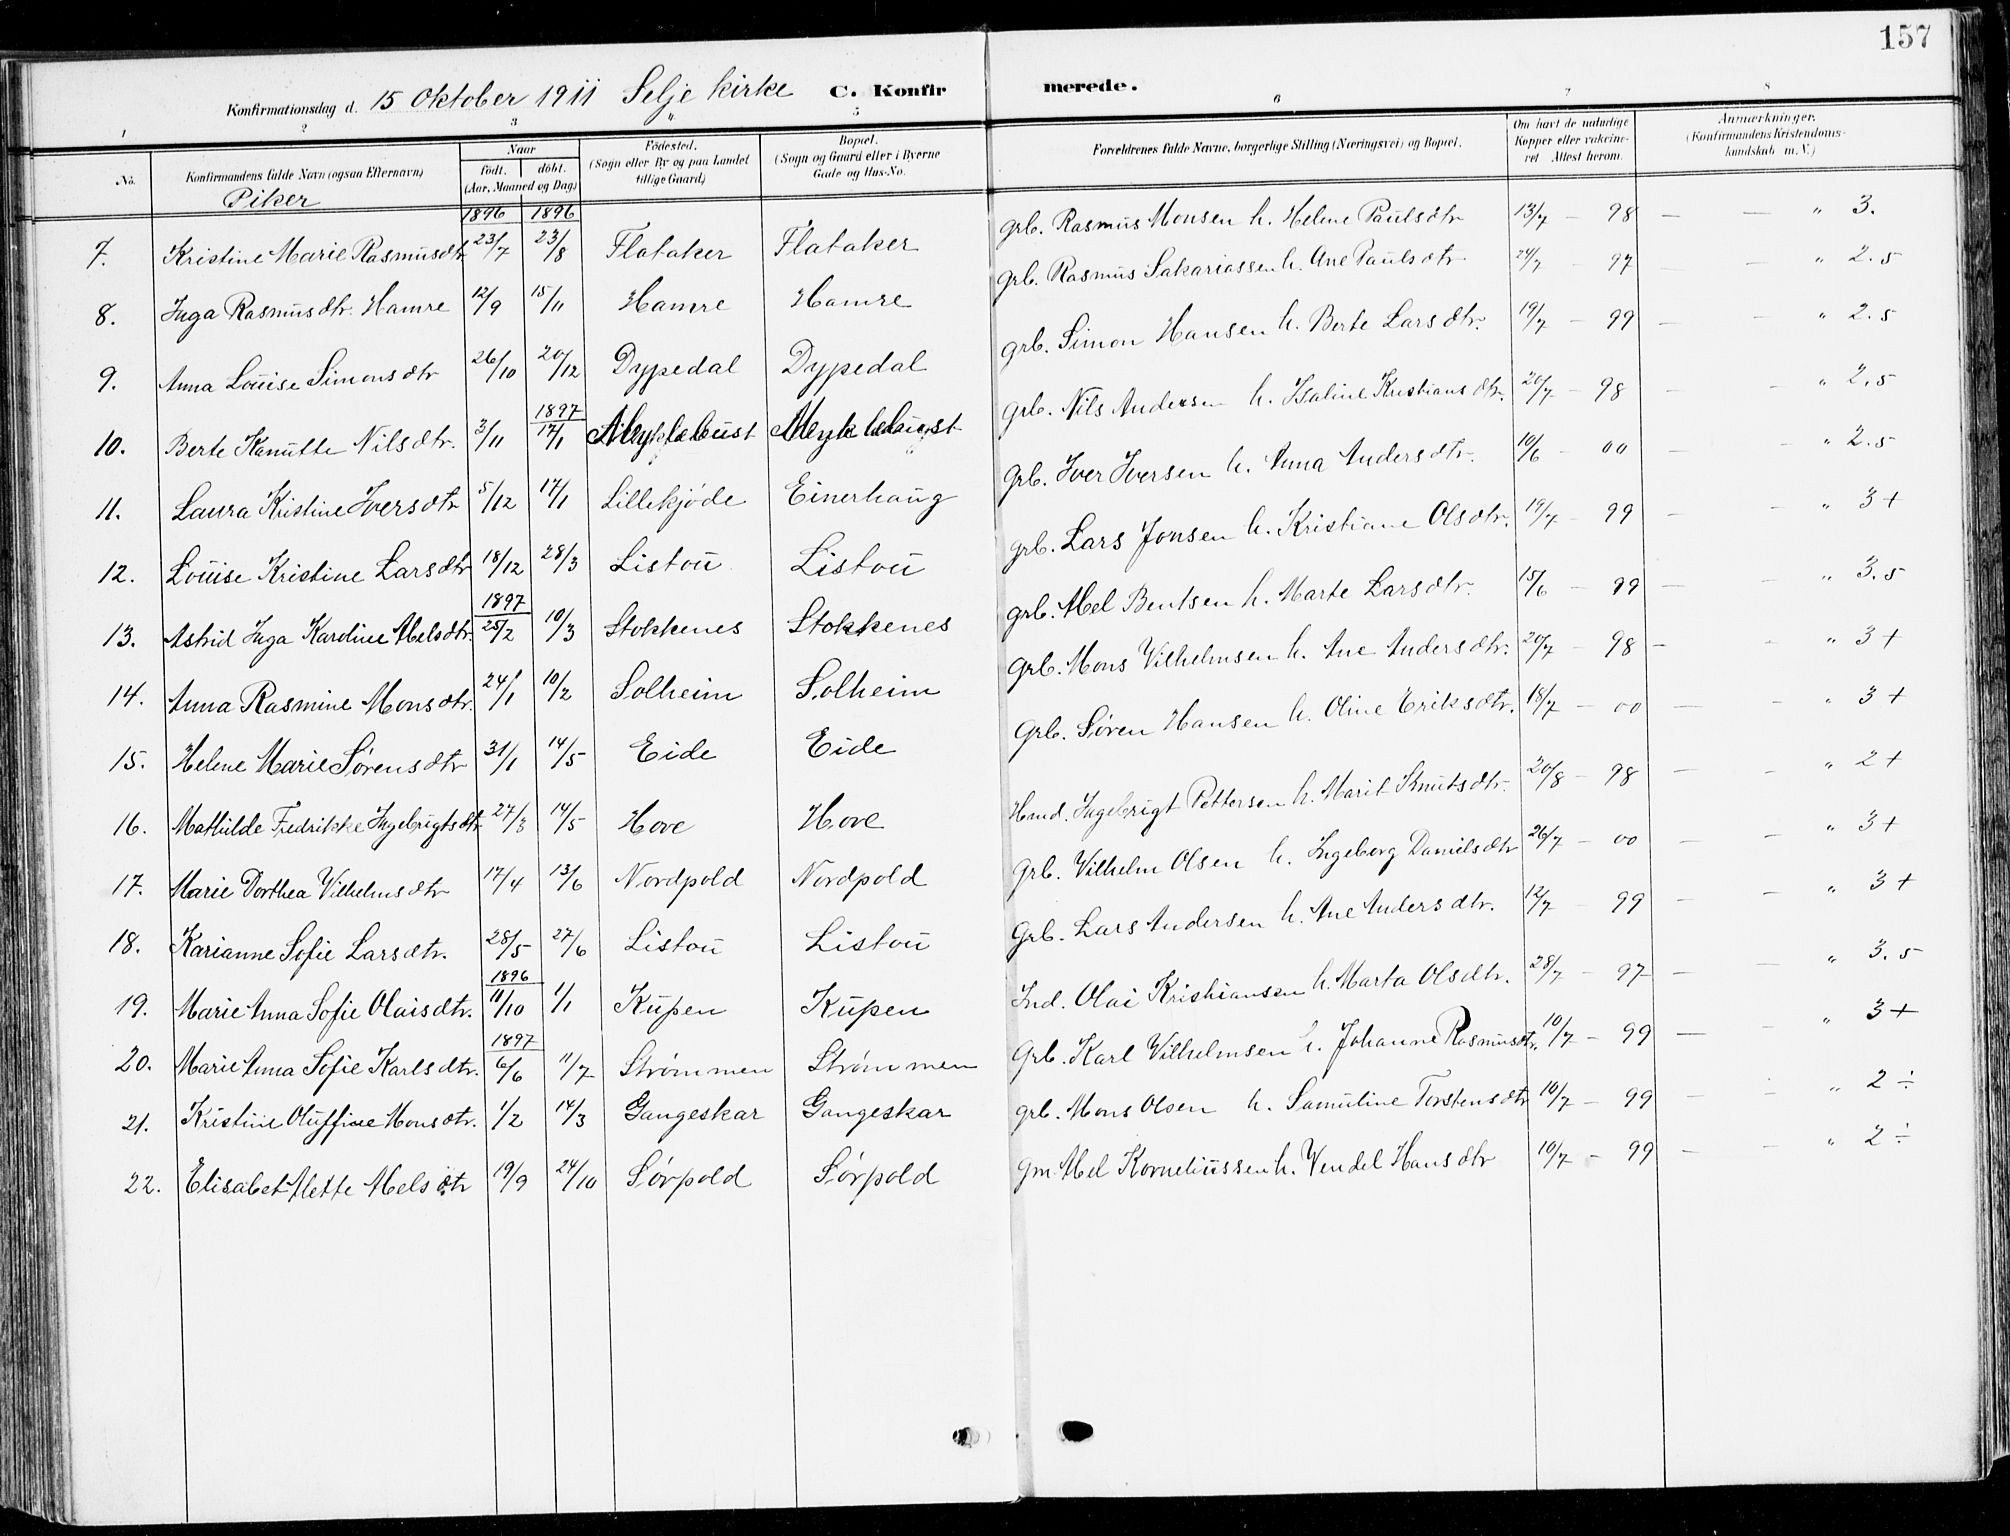 157
Konfirmationsdag d. 15 Oktober 1911 Selje kirke C. Konfirmerede.
1 2 3 4 5 6 7 8
No. Konfirmandens fulde Navn (ogsaa Efternavn) Naar Født. døbt. (Aar, Maaned og Dag) Fødested. (Sogn eller By og paa Landet tillige Gaard) Bopæl. (Sogn og Gaard eller i Byerne Gade og Hus-No. Forældrenes fulde Navne, borgerlige Stilling (Næringsvei) og Bopæl. Om havt de naturlige Kopper eller vakcineret Attest herom. Anmærkninger. (Konfirmandens Kristendomskundskab m. V.)
Piker 1896 1896
7. Kristine Marie Rasmusdtr 23/7 23/8 Flataker Flataker grb. Rasmus Monsen h. Helene Paulsdtr 13/7 - 98 — — " 3.
8. Inga Rasmusdtr. Hamre 12/9 15/11 Hamre Hamre grb. Rasmus Sakariassen h. Ane Paulsdtr 24/7 - 97 — " 2.5
9. Anna Louise Simonsdtr 26/10 20/12 Dypedal Dypedal grb. Simon Hansen h. Berte Larsdtr. 19/7 - 99 — " 2.5
1897
10. Berte Kanutte Nilsdtr. 3/11 17/1 Myklebust Myklebust grb. Nils Andersen h. Isaline Kristiansdtr. 20/7 - 98 — - " 2.5
11. Laura Kristine Iversdtr 5/12 17/1 Lillekjøde Einerhaug grb. Iver Iversen h. Anna Andersdtr. 10/6 - 00 — - " 2.5
12. Louise Kristine Larsdtr 18/12 28/3 Listou Listou grb. Lars Jonsen h. Kristiane Olsdtr. 19/7 - 99 — - " 3+
1897
13. Astrid Inga Karoline Abelsdtr. 25/2 10/3 Stokkenes Stokkenes grb. Abel Bentsen h. Marte Larsdtr. 15/6 - 99 — - " 3.5
14. Anna Rasmine Monsdtr. 24/1 10/2 Solheim Solheim grb. Mons Vilhelmsen h. Ane Andersdtr. 20/7 - 98 - - " 3+
15. Helene Marie Sørensdtr 31/1 14/5 Eide Eide grb. Søren Hansen h. Oline Eriksdtr. 18/7 - 00 — - " 3+
16. Mathilde Fredrikke Ingebrigtsdtr 27/3 14/5 Hove Hove Hmd. Ingebrigt Pettersen h. Marit Knutsdtr. 20/8 - 98 — - " 2+
17. Marie Dorthea Vilhelmsdtr 17/4 13/6 Nordpold Nordpold grb. Vilhelm Olsen h. Ingeborg Danielsdtr 26/7 - 00 — - " 3+
18. Karianne Sofie Larsdtr. 28/5 27/6 Listou Listou grb. Lars Andersen h. Ane Andersdtr. 12/7 - 99 — - " 3+
1896
19. Marie Anna Sofie Olaisdtr. 11/10 1/1 Kupen Kupen Ind. Olai Kristiansen h. Marta Olsdtr. 28/7 - 97 — — " 3.5
1897
20. Marie Anna Sofie Karlsdtr. 6/6 11/7 Strømmen Strømmen grb. Karl Vilhelmsen h. Johanne Rasmusdtr. 10/7 - 99 — - " 3+
21. Kristine Oluffine Monsdtr. 1/2 14/3 Gangeskar Gangeskar grb. Mons Olsen h. Samuline Torstensdtr 10/7 - 99 — - " 2÷
22. Elisabet Mette Abelsdtr 19/9 24/10 Sørpold Sørpold gm. Abel Korneliussen h. Vendel Hansdtr 10/7 - 99 — - " 2÷